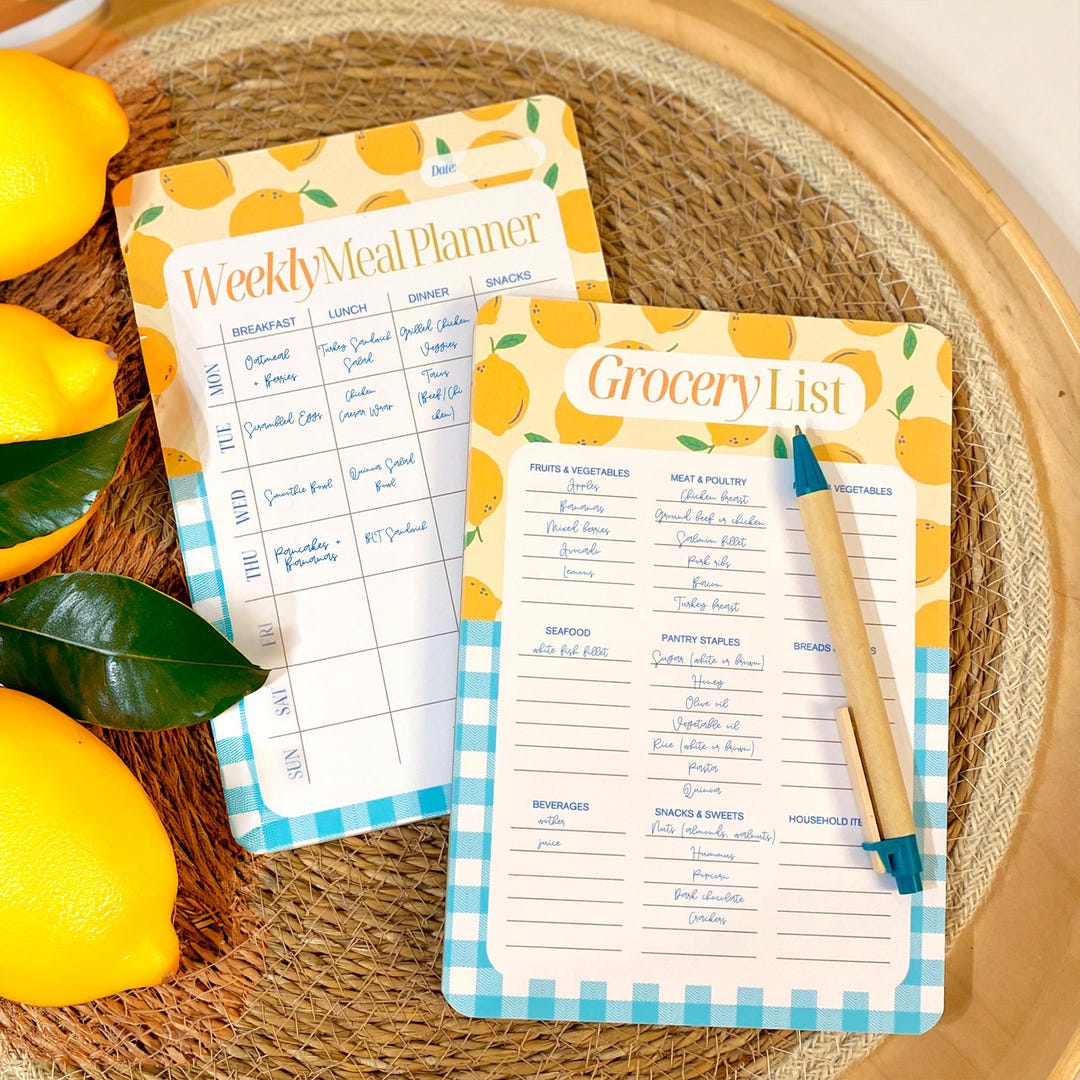 Date:
Weekly Meal Planner
BREAKFAST LUNCH DINNER SNACKS
MON
Oatmeal
+ Berries
Turkey Sandwich
Salad
Grilled Chicken
Veggies
TUE
Scrambled Eggs
Chicken
Caesar Wrap
Tacos
(Beef/Chi
cken)
WED
Smoothie Bowl
Quinoa Salad
Bowl
THU
Pancakes +
Bananas
BLT Sandwich
FRI
SAT
SUN
Grocery List
FRUITS & VEGETABLES
Apples
Bananas
Mixed berries
Avocado
Lemons
MEAT & POULTRY
Chicken breast
Ground beef or chicken
Salmon fillet
Pork ribs
Bacon
Turkey breast
VEGETABLES
SEAFOOD
white fish fillet
PANTRY STAPLES
Sugar (white or brown)
Honey
Olive oil
Vegetable oil
Rice (white or brown)
Pasta
Quinoa
BREADS
BEVERAGES
juice
SNACKS & SWEETS
Nuts (almonds, walnuts)
Hummus
Popcorn
Dark chocolate
Crackers
HOUSEHOLD ITE